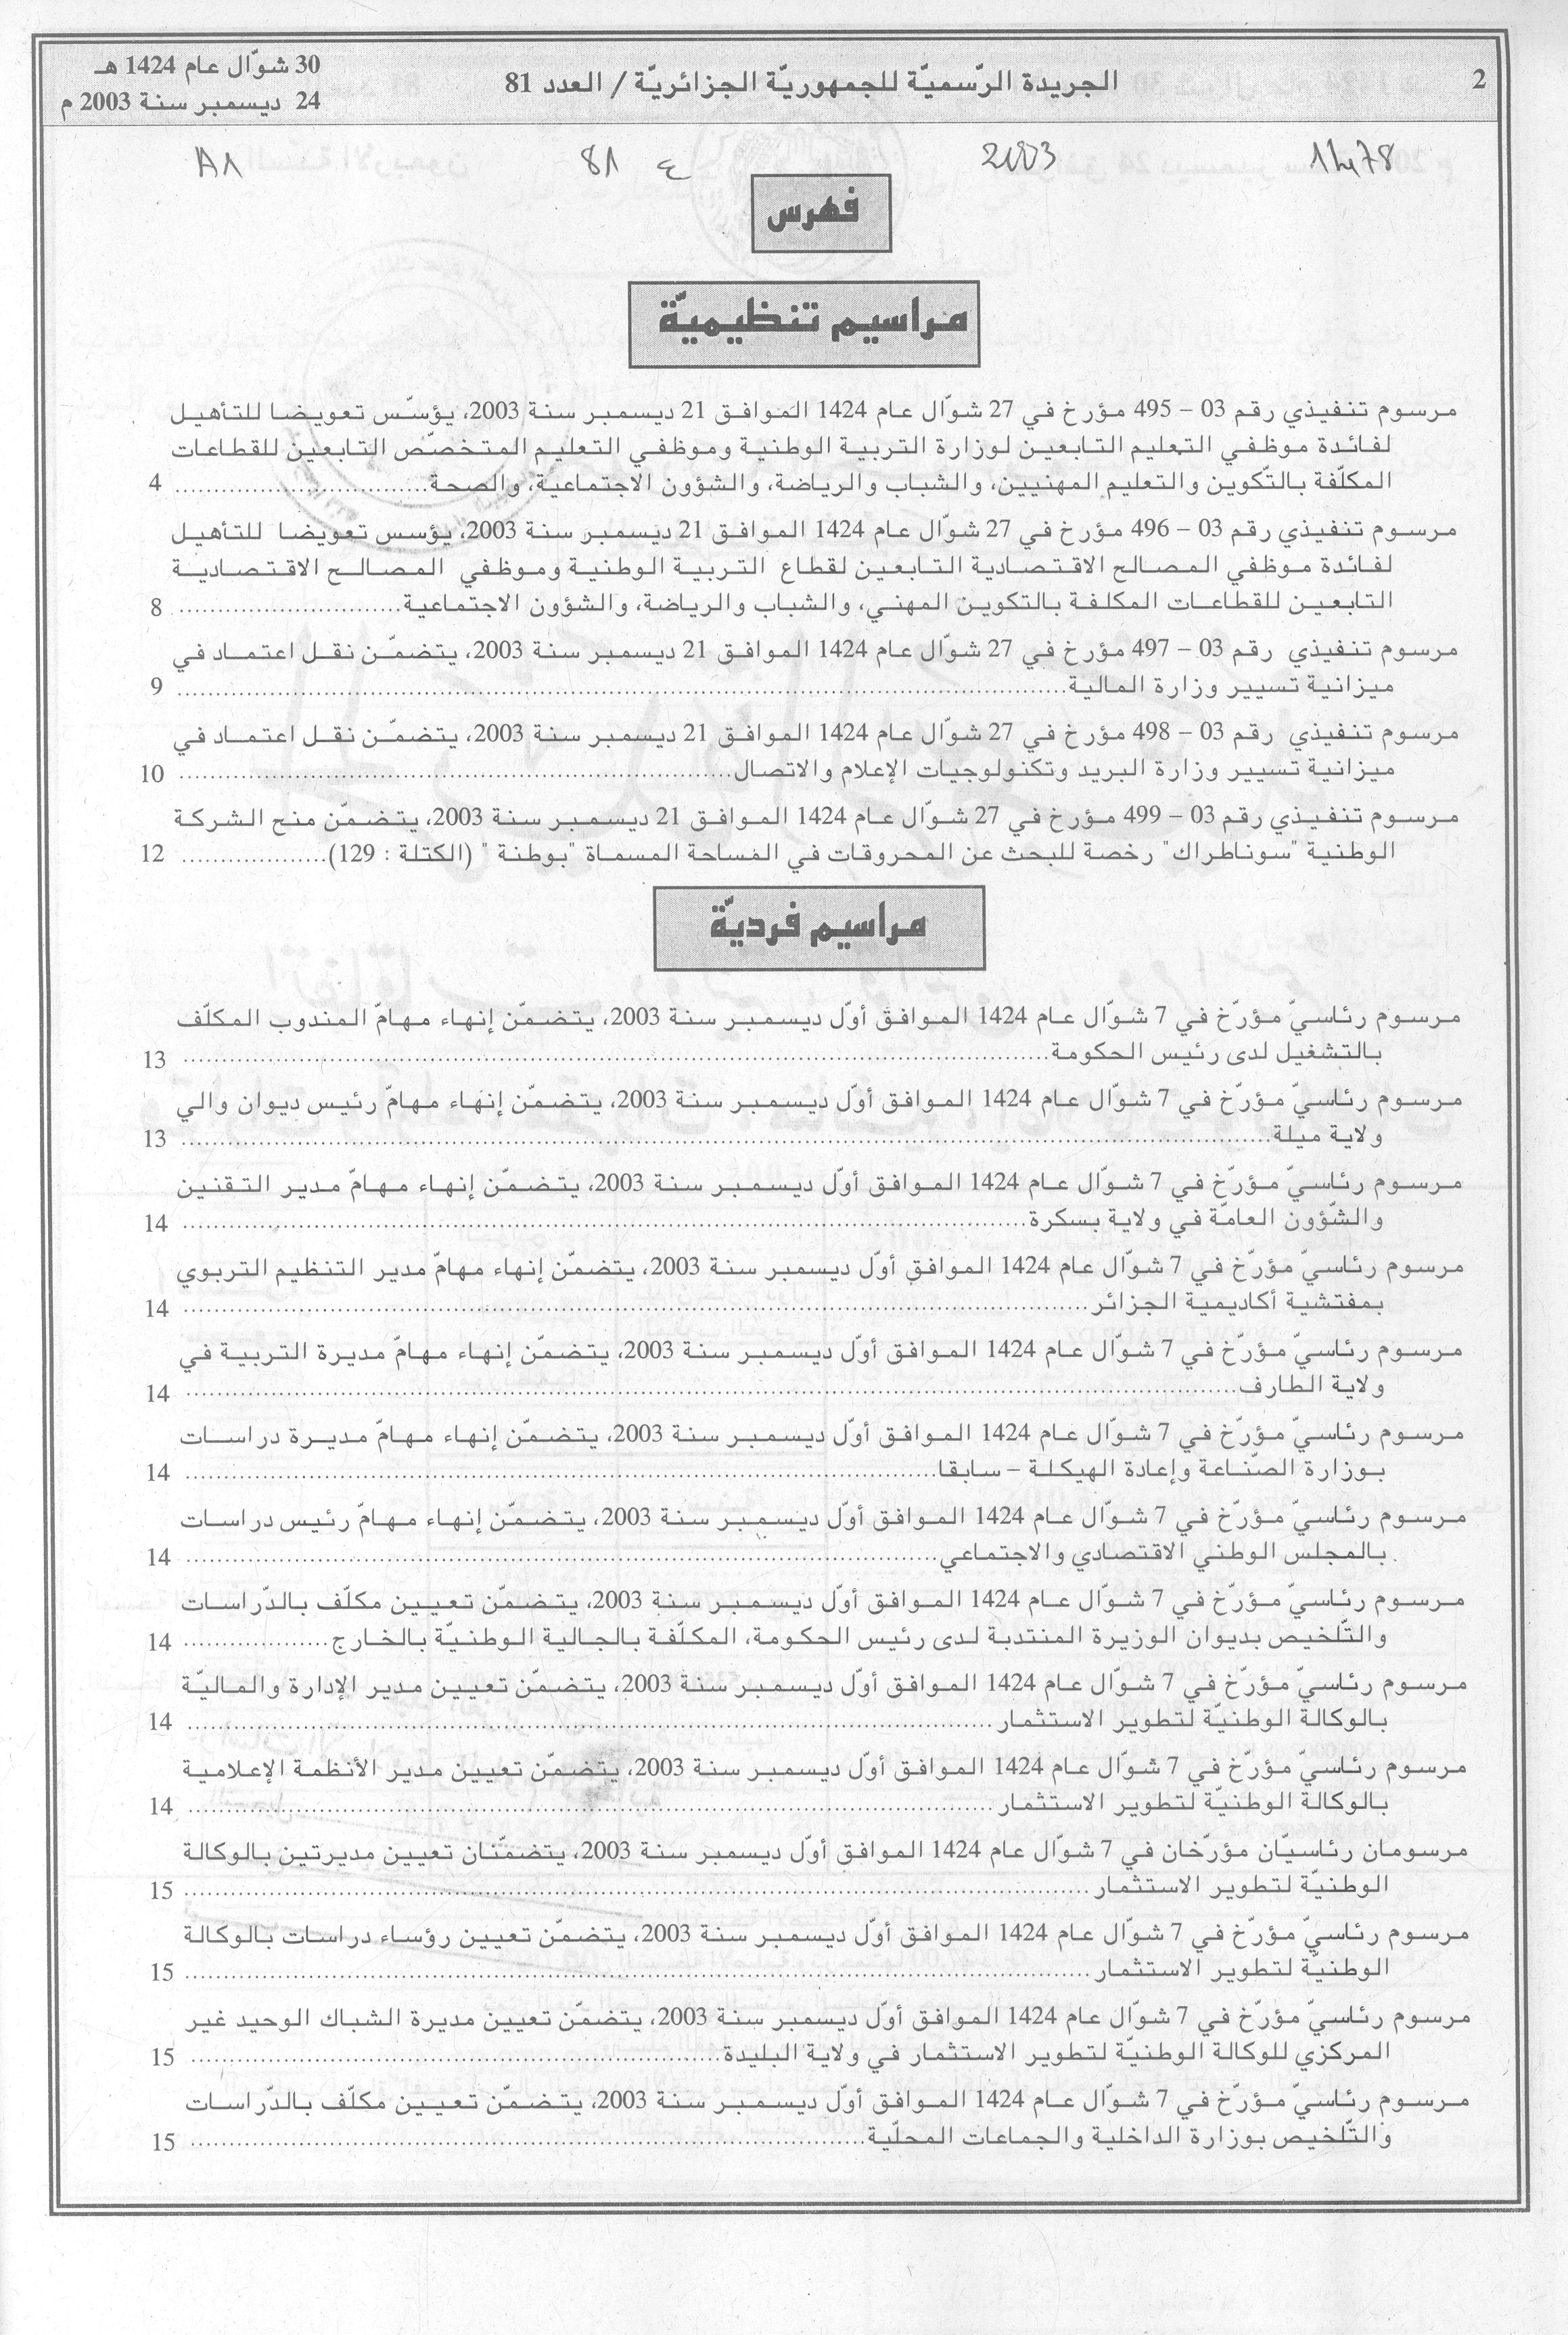 2
الجريدة الرّسميّة للجمهوريّة الجزائريّة / العدد 81
30 شوّال عام 1424 هـ
24 ديسمبر سنة 2003 م
1478
2003
ع 81
A1
فهرس
مراسيم تنظيميّة
مرسوم تنفيذي رقم 03 – 495 مؤرخ في 27 شوّال عام 1424 الموافق 21 ديسمبر سنة 2003، يؤسّس تعويضا للتأهيل
لفائدة موظفي التعليم التابعين لوزارة التربية الوطنية وموظفي التعليم المتخصّص التابعين للقطاعات
المكلّفة بالتّكوين والتعليم المهنيين، والشباب والرياضة، والشؤون الاجتماعية، والصحة........................... 4
مرسوم تنفيذي رقم 03 – 496 مؤرخ في 27 شوّال عام 1424 الموافق 21 ديسمبر سنة 2003، يؤسس تعويضا للتأهيل
لفائدة موظفي المصالح الاقتصادية التابعين لقطاع التربية الوطنية وموظفي المصالح الاقتصادية
التابعين للقطاعات المكلفة بالتكوين المهني، والشباب والرياضة، والشؤون الاجتماعية........................... 8
مرسوم تنفيذي رقم 03 – 497 مؤرخ في 27 شوّال عام 1424 الموافق 21 ديسمبر سنة 2003، يتضمّن نقل اعتماد في
ميزانية تسيير وزارة المالية........................... 9
مرسوم تنفيذي رقم 03 – 498 مؤرخ في 27 شوّال عام 1424 الموافق 21 ديسمبر سنة 2003، يتضمّن نقل اعتماد في
ميزانية تسيير وزارة البريد وتكنولوجيات الإعلام والاتصال........................... 10
مرسوم تنفيذي رقم 03 – 499 مؤرخ في 27 شوّال عام 1424 الموافق 21 ديسمبر سنة 2003، يتضمّن منح الشركة
الوطنية "سوناطراك" رخصة للبحث عن المحروقات في المساحة المسماة "بوطنة " (الكتلة : 129)........................... 12
مراسيم فرديّة
مرسوم رئاسيّ مؤرّخ في 7 شوّال عام 1424 الموافق أوّل ديسمبر سنة 2003، يتضمّن إنهاء مهامّ المندوب المكلّف
بالتشغيل لدى رئيس الحكومة........................... 13
مرسوم رئاسيّ مؤرّخ في 7 شوّال عام 1424 الموافق أوّل ديسمبر سنة 2003، يتضمّن إنهاء مهامّ رئيس ديوان والي
ولاية ميلة........................... 13
مرسوم رئاسيّ مؤرّخ في 7 شوّال عام 1424 الموافق أوّل ديسمبر سنة 2003، يتضمّن إنهاء مهامّ مدير التقنين
والشّؤون العامّة في ولاية بسكرة........................... 14
مرسوم رئاسيّ مؤرّخ في 7 شوّال عام 1424 الموافق أوّل ديسمبر سنة 2003، يتضمّن إنهاء مهامّ مدير التنظيم التربوي
بمفتشية أكاديمية الجزائر........................... 14
مرسوم رئاسيّ مؤرّخ في 7 شوّال عام 1424 الموافق أوّل ديسمبر سنة 2003، يتضمّن إنهاء مهامّ مديرة التربية في
ولاية الطارف........................... 14
مرسوم رئاسيّ مؤرّخ في 7 شوّال عام 1424 الموافق أوّل ديسمبر سنة 2003، يتضمّن إنهاء مهامّ مديرة دراسات
بوزارة الصّناعة وإعادة الهيكلة – سابقا........................... 14
مرسوم رئاسيّ مؤرّخ في 7 شوّال عام 1424 الموافق أوّل ديسمبر سنة 2003، يتضمّن إنهاء مهامّ رئيس دراسات
بالمجلس الوطني الاقتصادي والاجتماعي........................... 14
مرسوم رئاسيّ مؤرّخ في 7 شوّال عام 1424 الموافق أوّل ديسمبر سنة 2003، يتضمّن تعيين مكلّف بالدّراسات
والتّلخيص بديوان الوزيرة المنتدبة لدى رئيس الحكومة، المكلّفة بالجالية الوطنيّة بالخارج........................... 14
مرسوم رئاسيّ مؤرّخ في 7 شوّال عام 1424 الموافق أوّل ديسمبر سنة 2003، يتضمّن تعيين مدير الإدارة والماليّة
بالوكالة الوطنيّة لتطوير الاستثمار........................... 14
مرسوم رئاسيّ مؤرّخ في 7 شوّال عام 1424 الموافق أوّل ديسمبر سنة 2003، يتضمّن تعيين مدير الأنظمة الإعلامية
بالوكالة الوطنيّة لتطوير الاستثمار........................... 14
مرسومان رئاسيّان مؤرّخان في 7 شوّال عام 1424 الموافق أوّل ديسمبر سنة 2003، يتضمّنان تعيين مديرتين بالوكالة
الوطنيّة لتطوير الاستثمار........................... 15
مرسوم رئاسيّ مؤرّخ في 7 شوّال عام 1424 الموافق أوّل ديسمبر سنة 2003، يتضمّن تعيين رؤساء دراسات بالوكالة
الوطنيّة لتطوير الاستثمار........................... 15
مرسوم رئاسيّ مؤرّخ في 7 شوّال عام 1424 الموافق أوّل ديسمبر سنة 2003، يتضمّن تعيين مديرة الشباك الوحيد غير
المركزي للوكالة الوطنيّة لتطوير الاستثمار في ولاية البليدة........................... 15
مرسوم رئاسيّ مؤرّخ في 7 شوّال عام 1424 الموافق أوّل ديسمبر سنة 2003، يتضمّن تعيين مكلّف بالدّراسات
والتّلخيص بوزارة الداخلية والجماعات المحلّية........................... 15